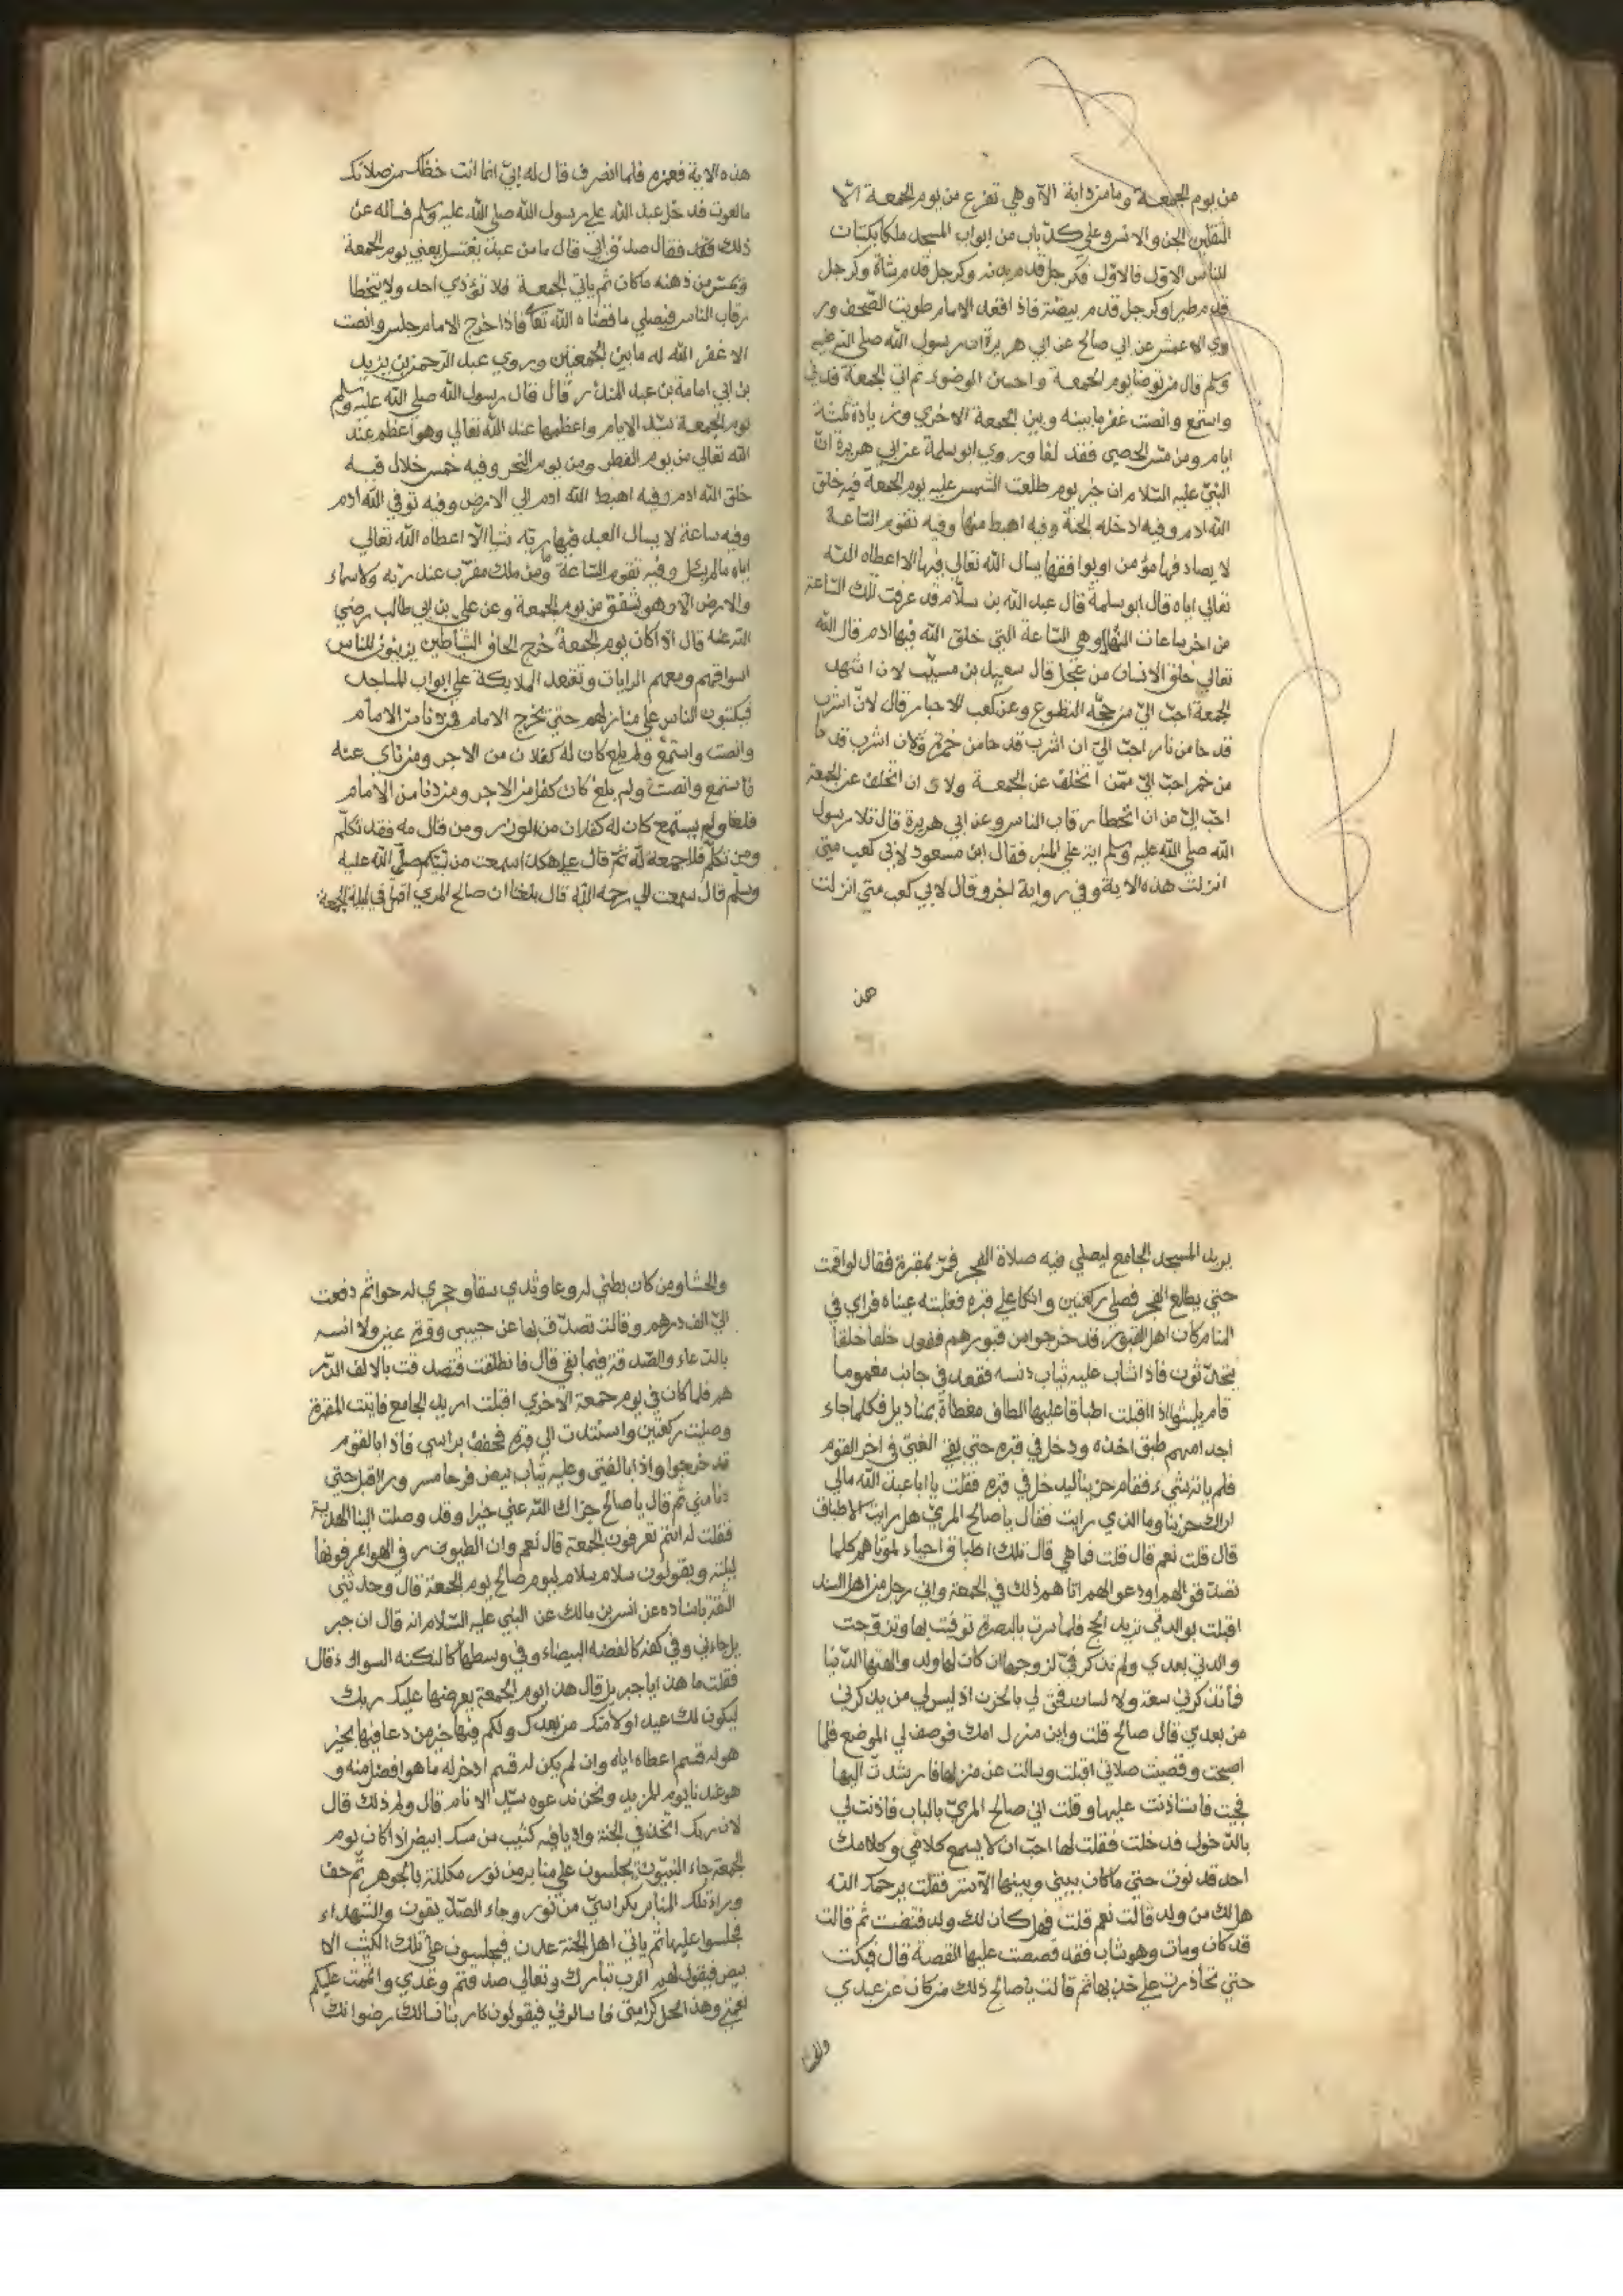 من يوم الجمعة وما من دابة الا وهي تفزع من يوم الجمعة الا
الثقلين الجن والانس وعلي كل باب من ابواب المسجد ملكا يكتبان
للناس الاول فالاول فكرجل قدم بدنه وكرجل قدم شاة وكرجل
قدم طيرا وكرجل قدم بيضة فاذا قعد الامام طويت الصحف ور
وي الاعمش عن ابي صالح عن ابي هريرة ان رسول الله صلي الله عليه
وسلم قال من توضا يوم الجمعة واحسن الوضوء ثم اتي الجمعة فدني
واستمع وانصت غفر ما بينه وبين الجمعة الاخري وزيادة ثلثة
ايام ومن مس الحصي فقد لغا وروي ابو سلمة عن ابي هريرة ان
النبي عليه السلام ان خير يوم طلعت الشمس عليه يوم الجمعة فيه خلق
الله ادم وفيه ادخله الجنة وفيه اهبط منها وفيه تقوم الساعة
لا يصادفها مؤمن اويوافقها يسال الله تعالي فيها الا اعطاه الله
تعالي اياه قال ابو سلمة قال عبد الله بن سلام قد عرفت تلك الساعة
من اخر ساعات النهار وهي الساعة التي خلق الله فيها ادم قال الله
تعالي خلق الانسان من عجل قال سعيد بن مسيب لان اشهد
الجمعة احب الي من حجة التطوع وعن كعب الاحبار قال لان اشرب
قدحا من نار احب الي ان اشرب قدحا من خمر ولان اشرب قدحا
من خمر احب الي من اتخلف عن الجمعة ولاى ان اتخلف عن الجمعة
احب الي من ان اتخطا رقاب الناس وعن ابي هريرة قال تلا رسول
الله صلي الله عليه وسلم اية علي المنبر فقال ابن مسعود لابي كعب متي
انزلت هذه الاية وفي رواية اخر وقال لابي كعب متي انزلت
هذ
هذه الاية فغمزه فلما انصرف قال له ابي انما انت حظك من صلاتك
ما لغوت فدخل عبد الله علي رسول الله صلي الله عليه وسلم فساله عن
ذلك فقال صدق ابي قال ما من عبد يغتسل يعني يوم الجمعة
ويمس من دهنه ما كان ثم ياتي الجمعة فلا تؤذي احد ولا يتخطا
رقاب الناس فيصلي ما قضاه الله تعا فاذا خرج الامام جلس وانصت
الا غفر الله له ما بين الجمعتين وروي عبد الرحمن بن يزيد
بن ابي امامة بن عبد المنذر قال قال رسول الله صلي الله عليه وسلم
يوم الجمعة سيد الايام واعظمها عند الله تعالي وهو اعظم عند
الله تعالي من يوم الفطر ومن يوم النحر وفيه خمس خلال فيه
خلق الله ادم وفيه اهبط الله ادم الي الارض وفيه توفي الله ادم
وفيه ساعة لا يسال العبد فيها ربه شيا الا اعطاه الله تعالي
اياه مالم يسل وفيه تقوم الساعة ومن ملك مقرب عند ربه ولا سماء
والارض الا وهو تشفق من يوم الجمعة وعن علي بن ابي طالب رضي
الله عنه قال اذا كان يوم الجمعة خرج الشياطين يزينون للناس
اسواقهم ومعهم الرايات وتقعد الملايكة علي ابواب المساجد
فيكتبون الناس علي منازلهم حتي يخرج الامام فمن دنا من الامام
وانصت واستمع ولم يلغ كان له كفلان من الاجر ومن ناي عنه
فاستمع وانصت ولم يلغ كان كفل من الاجر ومن دنا من الامام
فلغا ولم يستمع كان له كفلان من الوزر ومن قال مه فقد تكلم
ومن تكلم فلا جمعة له ثم قال علي هكذا سمعت من نبيكم صلي الله عليه
وسلم قال سمعت ابي رحمه الله قال بلغنا ان صالح المري اقبل في ليلة الجمعة
يريد المسجد الجامع ليصلي فيه صلاة الفجر فمر بمقبرة فقال لو اقمت
حتي يطلع الفجر فصلي ركعتين واتكا علي قبره فغلبته عيناه فراي في
المنام كان اهل القبور قد خرجوا من قبورهم فقعد حلقا حلقا
يتحدثون فاذا شاب عليه ثياب دنسه فقعد في جانب مغموما
فلم يلبثوا اذا اقبلت اطباقا عليها الطاف مغطاة بمناديل فكلما جاء
احد منهم طبق اخذه ودخل في قبره حتي بقي الفتي في اخر القوم
فلم ياته شيء فقام حزينا ليدخل في قبره فقلت يا ابا عبد الله مالي
اراك حزينا وما الذي رايت فقال يا صالح المري هل رايت الاطباق
قال قلت نعم قال قلت فما هي قال تلك اطباق احياء لموتاهم كلما
تصدقوا لهم اودعو الهم اتاهم ذلك في الجمعة واني رجل من اهل السند
اقبلت بوالدتي نريد الحج فلما سرت بالبصرة توفيت بها وتزوجت
والدتي بعدي ولم تذكر في لزوجها ان كان لها ولد والهتها الدنيا
فما تذكرني سعة ولا لسان فحق لي بالحزن اذ ليس لي من يذكرني
من بعدي قال صالح قلت واين منزل امك فوصف لي الموضع فلما
اصبحت وقضيت صلاتي اقبلت وسالت عن منزلها فارشدت اليها
فجيت فاستاذنت عليها وقلت اني صالح المري بالباب فاذنت لي
بالدخول فدخلت فقلت لها احب ان لا يسمع كلامي وكلامك
احد فدنوت حتي ما كان بيني وبينها الا ستر فقلت يرحمك الله
هل لك من ولد قالت نعم قلت فهل كان لك ولد فتنفست ثم قالت
قد كان ومات وهو شاب فقد قصصت عليها القصة قال فبكت
حتي تحاذرت علي خدبها ثم قالت يا صالح ذلك من كان عن عبدي
والحشا
والحشا ومن كان بطني له وعا وثدي سقا وحجري له حوا ثم دفعت
الي الف درهم وقالت تصدق بها عن حبيبي وقرة عيني ولا انسه
بالدعاء والصدقة فيما بقي قال فانطلقت فتصدقت بالالف الدر
هم فلما كان في يوم جمعة الاخري اقبلت اريد الجامع فاتيت المقبرة
وصليت ركعتين واستندت الي قبره فخفف براسي فاذا بالقوم
قد خرجوا واذا بالفتي وعليه ثياب بيض فرحا مسرورا اقبل حتي
دنا مني ثم قال يا صالح جزاك الله عني خيرا وقد وصلت الينا الهدية
فقلت له انتم تعرفون الجمعة قال نعم وان الطيور في الهوا عرفونها
ليلته ويقولون سلام سلام ليوم صالح يوم الجمعة قال وحدثني
الثقة باسناده عن انس بن مالك عن النبي عليه السلام انه قال ان جبر
يل جاءني وفي كفه كالفضه البيضاء وفي وسطها كالنكته السوداء قال
فقلت ما هذا يا جبريل قال هذا يوم الجمعة يعرضها عليك ربك
ليكون لك عيد او لامتك من بعدك ولكم فيها خير من دعا فيها بخير
هو له قسم اعطاه اياه وان لم يكن له قسم ادخر له ما هو افضل منه و
هو عندنا يوم المزيد ونحن ندعوه سيد الانام قال ولم ذلك قال
لان ربك اتخذ في الجنة واديا فيه كثيب من مسك ابيض اذا كان يوم
الجمعة جاء النبيون يجلسون علي منابر من نور مكللة بالجوهر ثم حف
وراء تلك المنابر بكراسي من نور وجاء الصديقون والشهداء
فجلسوا عليها ثم ياتي اهل الجنة عدن فيجلسون علي تلك الكثيب الا
بيض فيقول لهم الرب تبارك وتعالي صدقتم وعدي واتممت عليكم
نعمتي وهذا محل كرامتي فاسالوني فيقولون كاربنا نسالك رضوانك